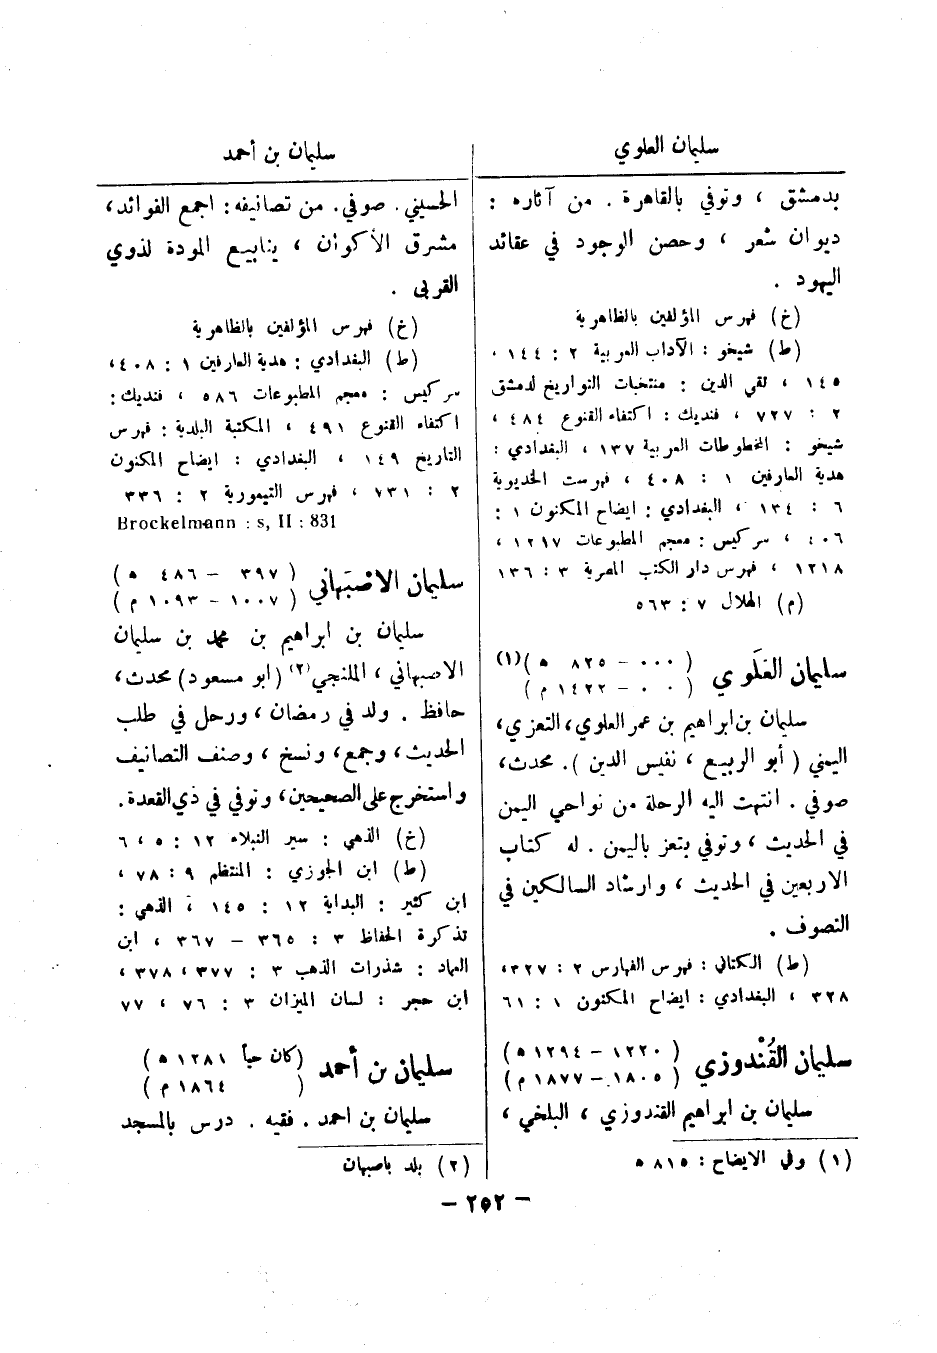 سليمان العلوي
بدمشق ، وتوفي بالقاهرة . من آثاره :
ديوان شعر ، وحصن الوجود في عقائد
اليهود .
(خ) فهرس المؤلفين بالظاهرية
(ط) شيخو : الآداب العربية ٢ : ١٤٤ ،
١٤٥ ، تقي الدين : منتخبات التواريخ لدمشق
٢ : ٧٢٧ ، فنديك : اكتفاء القنوع ٤٨٤ ،
شيخو : المخطوطات العربية ١٣٧ ، البغدادي :
هدية العارفين ١ : ٤٠٨ ، فهرست الخديوية
٦ : ١٣٤ ، البغدادي : ايضاح المكنون ١ :
٤٠٦ ، سركيس : معجم المطبوعات ١٢١٧ ،
١٢١٨ ، فهرس دار الكتب المصرية ٣ : ١٣٦
(م) الهلال ٧ : ٥٦٣
سليمان العَلَوي (٠٠٠ – ٨٢٥ ه)(١)
(٠٠ – ١٤٢٢ م)
سليمان بن ابراهيم بن عمر العلوي، التعزي،
اليمني ( أبو الربيع ، نفيس الدين ). محدث،
صوفي . انتهت اليه الرحلة من نواحي اليمن
في الحديث ، وتوفي بتعز باليمن . له كتاب
الاربعين في الحديث ، وارشاد السالكين في
التصوف .
(ط) الكتاني : فهرس الفهارس ٢ : ٣٢٧،
٣٢٨ ، البغدادي : ايضاح المكنون ١ : ٦١
سليمان القُنْدوزي (١٢٢٠ – ١٢٩٤ ه)
(١٨٠٥ – ١٨٧٧ م)
سليمان بن ابراهيم القندوزي ، البلخي ،
(١) وفي الايضاح : ٨١٥ ه
سليمان بن أحمد
الحسيني . صوفي . من تصانيفه : اجمع الفوائد،
مشرق الأكوان ، ينابيع المودة لذوي
القربى .
(خ) فهرس المؤلفين بالظاهرية
(ط) البغدادي : هدية العارفين ١ : ٤٠٨،
سركيس : معجم المطبوعات ٥٨٦ ، فنديك :
اكتفاء القنوع ٤٩١ ، المكتبة البلدية : فهرس
التاريخ ١٤٩ ، البغدادي : ايضاح المكنون
٢ : ٧٣١ ، فهرس التيمورية ٢ : ٣٣٦
Brockelmann : s, II : 831
سليمان الاصْبَهاني (٣٩٧ – ٤٨٦ ه)
(١٠٠٧ – ١٠٩٣ م)
سليمان بن ابراهيم بن محمد بن سليمان
الاصبهاني ، الملنجي (٢) (ابو مسعود) محدث،
حافظ . ولد في رمضان ، ورحل في طلب
الحديث ، وجمع ، ونسخ ، وصنف التصانيف
واستخرج على الصحيحين، وتوفي في ذي القعدة.
(خ) الذهبي : سير النبلاء ١٢ : ٥ ، ٦
(ط) ابن الجوزي : المنتظم ٩ : ٧٨ ،
ابن كثير : البداية ١٢ : ١٤٥ ، الذهبي :
تذكرة الحفاظ ٣ : ٣٦٥ – ٣٦٧ ، ابن
العماد : شذرات الذهب ٣ : ٣٧٧ ، ٣٧٨ ،
ابن حجر : لسان الميزان ٣ : ٧٦ ، ٧٧
سليمان بن أحمد (كان حياً ١٢٨١ ه)
(١٨٦٤ م)
سليمان بن احمد . فقيه . درس بالمسجد
(٢) بلد باصبهان
– ٢٥٢ –